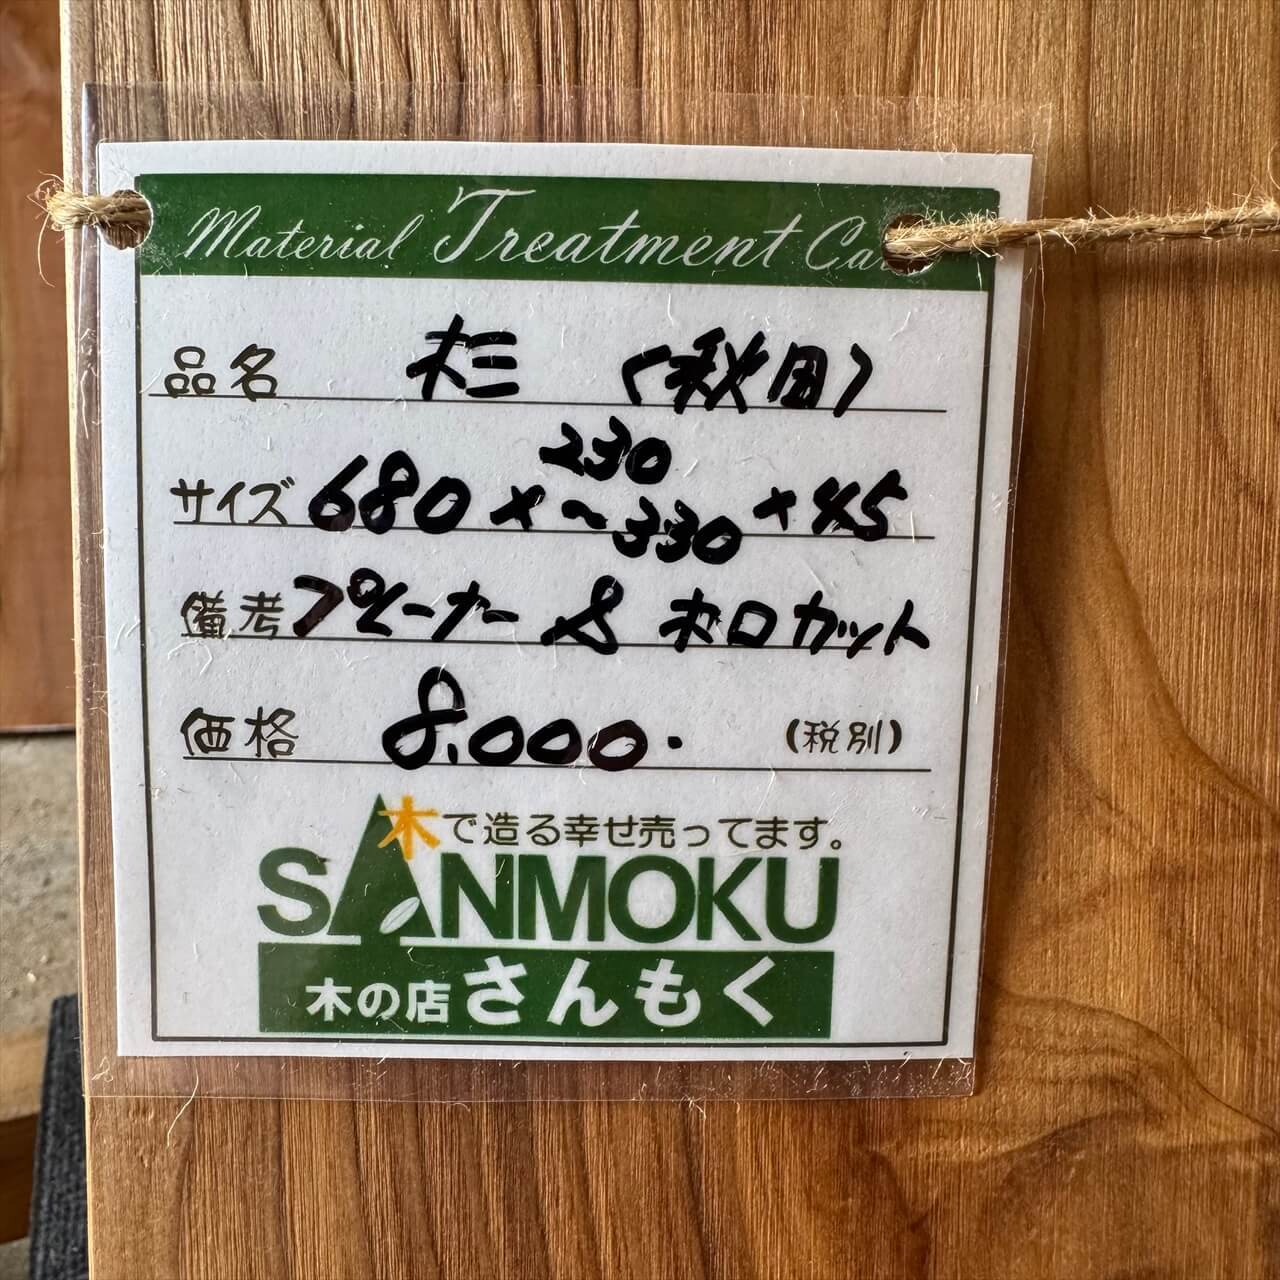 Material Treatment Ca
品名 杉 (秋田)
サイズ 680×230~330×45
備考 プレーナー & ホロカット
価格 8,000. (税別)
木で造る幸せ売ってます。
SANMOKU
木の店 さんもく